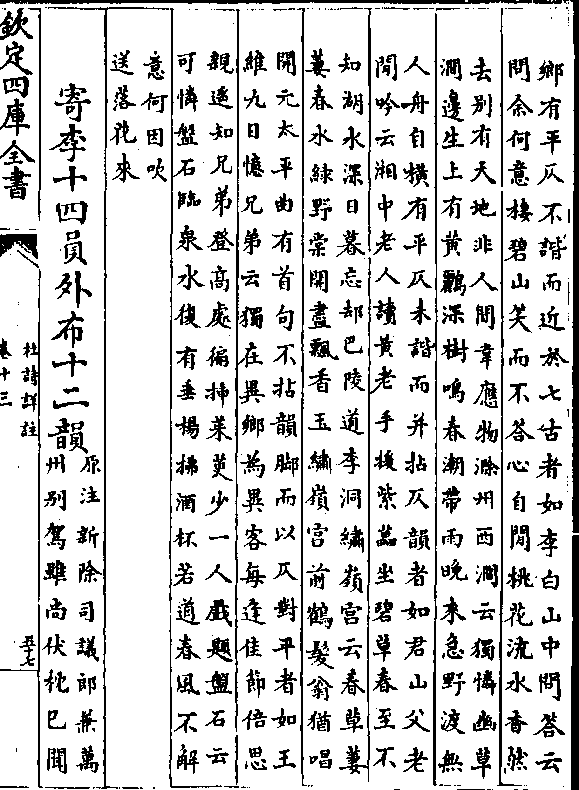 鄉有平仄不諧而近於七古者如李白山中問答云
問余何意棲碧山笑而不答心自閒桃花流水杳然
去别有天地非人間韋應物滁州西澗云獨憐幽草
澗邊生上有黄鸝深樹鳴春潮帶雨晚來急野渡無
人舟自横有平仄未諧而并拈仄韻者如君山父老
閒吟云湘中老人讀黄老手援紫藟坐碧草春至不
知湖水深日暮忘却巴陵道李洞繡嶺宮云春草萋
萋春水緑野棠開盡飄香玉繡嶺宮前鶴髮翁猶唱
開元太平曲有首句不拈韻脚而以仄對平者如王
維九日憶兄弟云獨在異鄉為異客每逢佳節倍思
親遥知兄弟登高處徧挿茱萸少一人戲題盤石云
可憐盤石臨泉水復有垂楊拂酒杯若道春風不解
意何因吹
送落花來
寄李十四員外布十二韻
原注新除司議郎兼萬
州别駕雖尚伏枕已聞
欽定四庫全書
杜詩詳註
卷十三
五十七